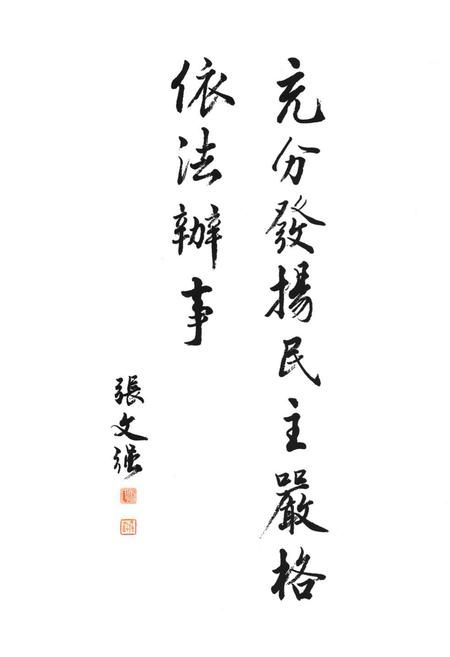 充分發揚民主嚴格
依法辦事
張文强